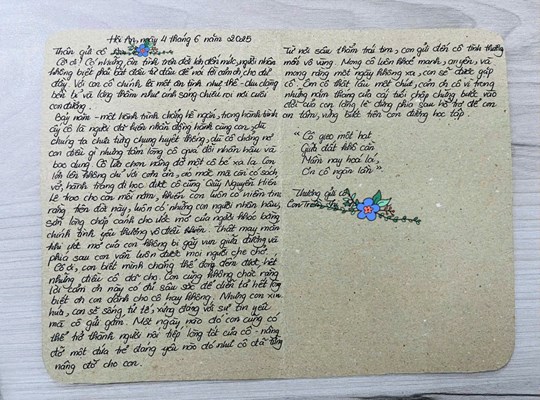 Hội An, ngày 4 tháng 6 năm 2025
Thân gửi cô
Cô ơi! Có những ân tình trên đời lớn đến mức, người nhận
không biết phải bắt đầu từ đâu để nói lời cảm ơn cho đủ
đầy. Với con cô chính là một ân tình như thế - dịu dàng
bền bỉ và lặng thầm như ánh sáng chiếu rọi nơi cuối
con đường.
Bảy năm - một hành trình chẳng hề ngắn, trong hành trình
ấy cô là người đã kiên nhẫn đồng hành cùng con, dù
chúng ta chưa từng chung huyết thống, dù cô chẳng nợ
con điều gì nhưng tấm lòng cô quá đỗi nhân hậu và
bao dung. Cô lựa chọn nâng đỡ một cô bé xa lạ. Con
lớn lên không chỉ với cơm ăn, áo mặc mà còn có sách
vở, hành trang đi học được cô cùng Quỹ Nguyễn Hiền
Lê trao cho con mỗi năm, khiến con luôn có niềm tin
rằng trên đời này, luôn có những con người nhân hậu,
sẵn lòng chắp cánh cho ước mơ của người khác bằng
chính tình yêu thương vô điều kiện. Thật may mắn
khi ước mơ của con không bị gãy vụn giữa đường và
phía sau con vẫn luôn được mọi người che chở.
Cô ơi, con biết mình chẳng thể đong đếm được hết
những điều cô đã cho. Con cũng không chắc rằng
lời cảm ơn này có đủ sâu sắc để diễn tả hết lòng
biết ơn con dành cho cô hay không. Nhưng con xin
hứa, con sẽ sống tử tế, xứng đáng với sự tin yêu
mà cô gửi gắm. Một ngày nào đó con cũng có
thể trở thành người nối tiếp lòng tốt của cô - nâng
đỡ một đứa trẻ đang yếu nào đó như cô đã từng
nâng đỡ cho con.
Từ nơi sâu thẳm trái tim, con gửi đến cô tình thương
mến vô vàng. Mong cô luôn khoẻ mạnh, an yên, và
mong rằng một ngày không xa, con sẽ được gặp
cô. Ôm cô thật lâu một chút, cảm ơn cô vì trong
những năm tháng của cái tuổi chập chững bước vào
đời của con lặng lẽ đứng phía sau hỗ trợ để con
an tâm, vững bước trên con đường học tập.
" Cô gieo một hạt
Giữa đất khô cằn
Mầm nay hoá lối,
Ơn cô ngàn lần".
Thương gửi cô,
Con